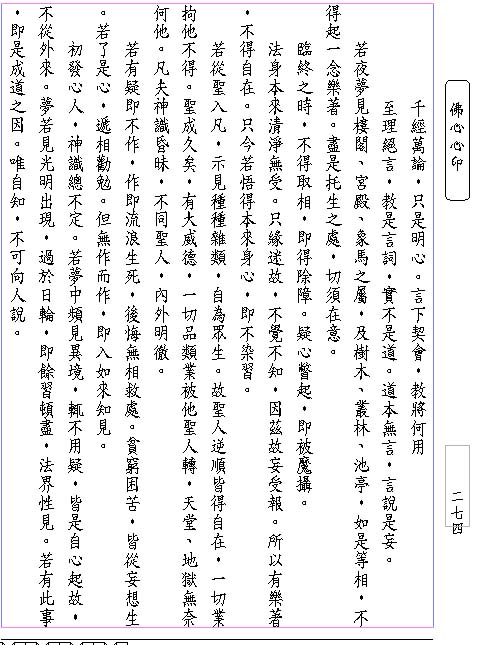 佛心心印
千經萬論，只是明心。言下契會，教將何用
至理絕言，教是言詞，實不是道。道本無言，言說是妄。
若夜夢見樓閣、宮殿、象馬之屬，及樹木、叢林、池亭，如是等相，不
得起一念樂著。盡是托生之處，切須在意。
臨終之時，不得取相，即得除障。疑心瞥起，即被魔攝。
法身本來清淨無受。只緣迷故，不覺不知，因茲故妄受報。所以有樂著
，不得自在。只今若悟得本來身心，即不染習。
若從聖入凡，示見種種雜類，自為眾生。故聖人逆順皆得自在，一切業
拘他不得。聖成久矣，有大威德，一切品類業被他聖人轉，天堂、地獄無奈
何他。凡夫神識昏昧，不同聖人，內外明徹。
若有疑即不作，作即流浪生死，後悔無相救處。貧窮困苦，皆從妄想生
。若了是心，遞相勸勉。但無作而作，即入如來知見。
初發心人，神識總不定。若夢中頻見異境，輒不用疑，皆是自心起故，
不從外來。夢若見光明出現，過於日輪，即餘習頓盡，法界性見。若有此事
，即是成道之因。唯自知，不可向人說。
二七四